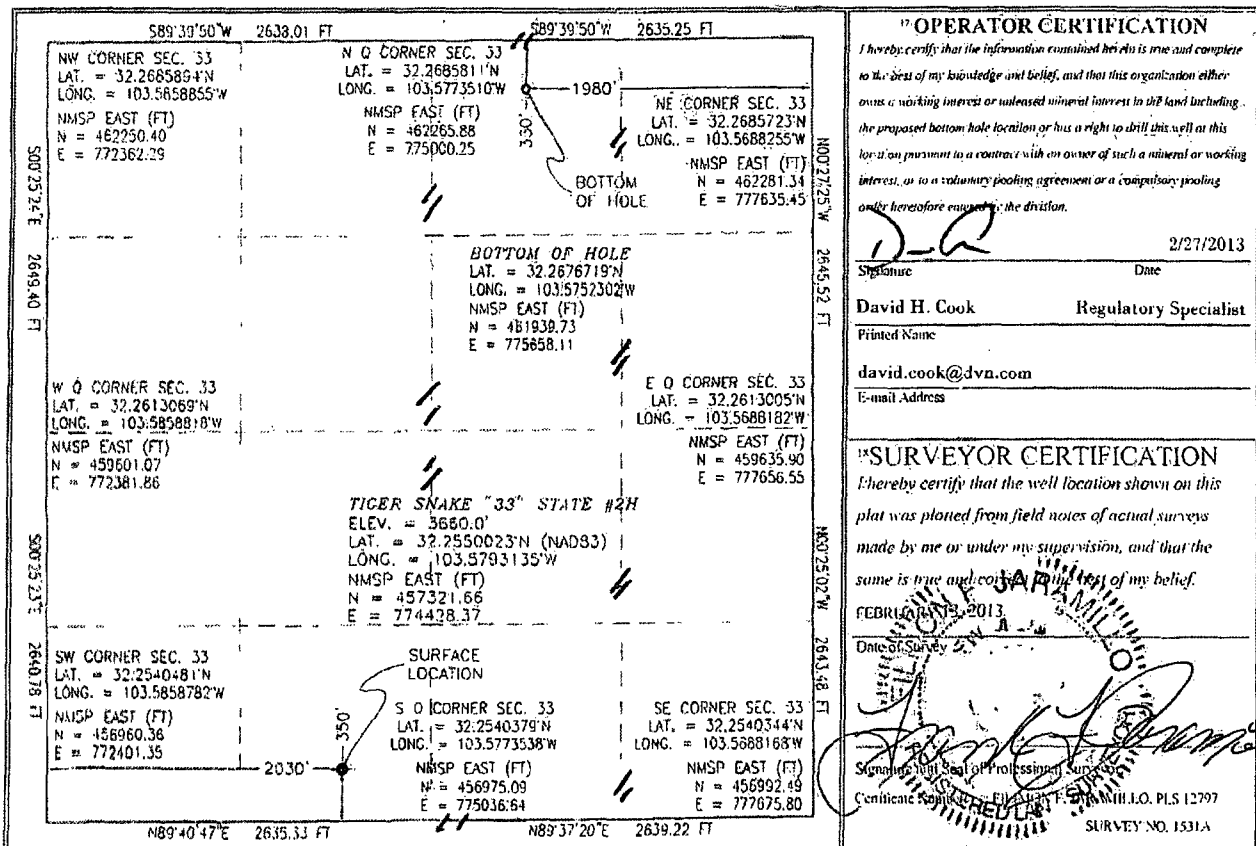 S89°39'50"W 2638.01 FT
S89°39'50"W 2635.25 FT
NW CORNER SEC. 33
LAT. = 32.2685894°N
LONG. = 103.5858855°W
NMSP EAST (FT)
N = 462250.40
E = 772362.29
N Q CORNER SEC. 33
LAT. = 32.2685811°N
LONG. = 103.5773510°W
NMSP EAST (FT)
N = 462265.88
E = 775000.25
330'
1980'
BOTTOM
OF HOLE
NE CORNER SEC. 33
LAT. = 32.2685723°N
LONG. = 103.5688255°W
NMSP EAST (FT)
N = 462281.34
E = 777635.45
S00°25'24"E 2649.40 FT
N00°27'25"W 2645.52 FT
BOTTOM OF HOLE
LAT. = 32.2676719°N
LONG. = 103.5752302°W
NMSP EAST (FT)
N = 461939.73
E = 775658.11
W Q CORNER SEC. 33
LAT. = 32.2613069°N
LONG. = 103.5858818°W
NMSP EAST (FT)
N = 459601.07
E = 772381.86
E Q CORNER SEC. 33
LAT. = 32.2613005°N
LONG. = 103.5688182°W
NMSP EAST (FT)
N = 459635.90
E = 777656.55
TIGER SNAKE "33" STATE #2H
ELEV. = 3660.0'
LAT. = 32.2550023°N (NAD83)
LONG. = 103.5793135°W
NMSP EAST (FT)
N = 457321.66
E = 774428.37
S00°25'23"E 2640.78 FT
N00°25'02"W 2643.48 FT
SW CORNER SEC. 33
LAT. = 32.2540481°N
LONG. = 103.5858782°W
NMSP EAST (FT)
N = 456960.36
E = 772401.35
SURFACE
LOCATION
350'
2030'
S Q CORNER SEC. 33
LAT. = 32.2540379°N
LONG. = 103.5773538°W
NMSP EAST (FT)
N = 456975.09
E = 775036.64
SE CORNER SEC. 33
LAT. = 32.2540344°N
LONG. = 103.5688168°W
NMSP EAST (FT)
N = 456992.49
E = 777675.80
N89°40'47"E 2635.33 FT
N89°37'20"E 2639.22 FT
17 OPERATOR CERTIFICATION
I hereby certify that the information contained herein is true and complete
to the best of my knowledge and belief, and that this organization either
owns a working interest or unleased mineral interest in the land including
the proposed bottom hole location or has a right to drill this well at this
location pursuant to a contract with an owner of such a mineral or working
interest, or to a voluntary pooling agreement or a compulsory pooling
order heretofore entered by the division.
2/27/2013
Signature Date
David H. Cook Regulatory Specialist
Printed Name
david.cook@dvn.com
E-mail Address
18 SURVEYOR CERTIFICATION
I hereby certify that the well location shown on this
plat was plotted from field notes of actual surveys
made by me or under my supervision, and that the
same is true and correct to the best of my belief.
FEBRUARY 13, 2013
Date of Survey
Signature and Seal of Professional Surveyor
Certificate F. JARAMILLO, PLS 12797
SURVEY NO. 1531A
F. JARAMILLO
REGISTERED LAND SURVEYOR